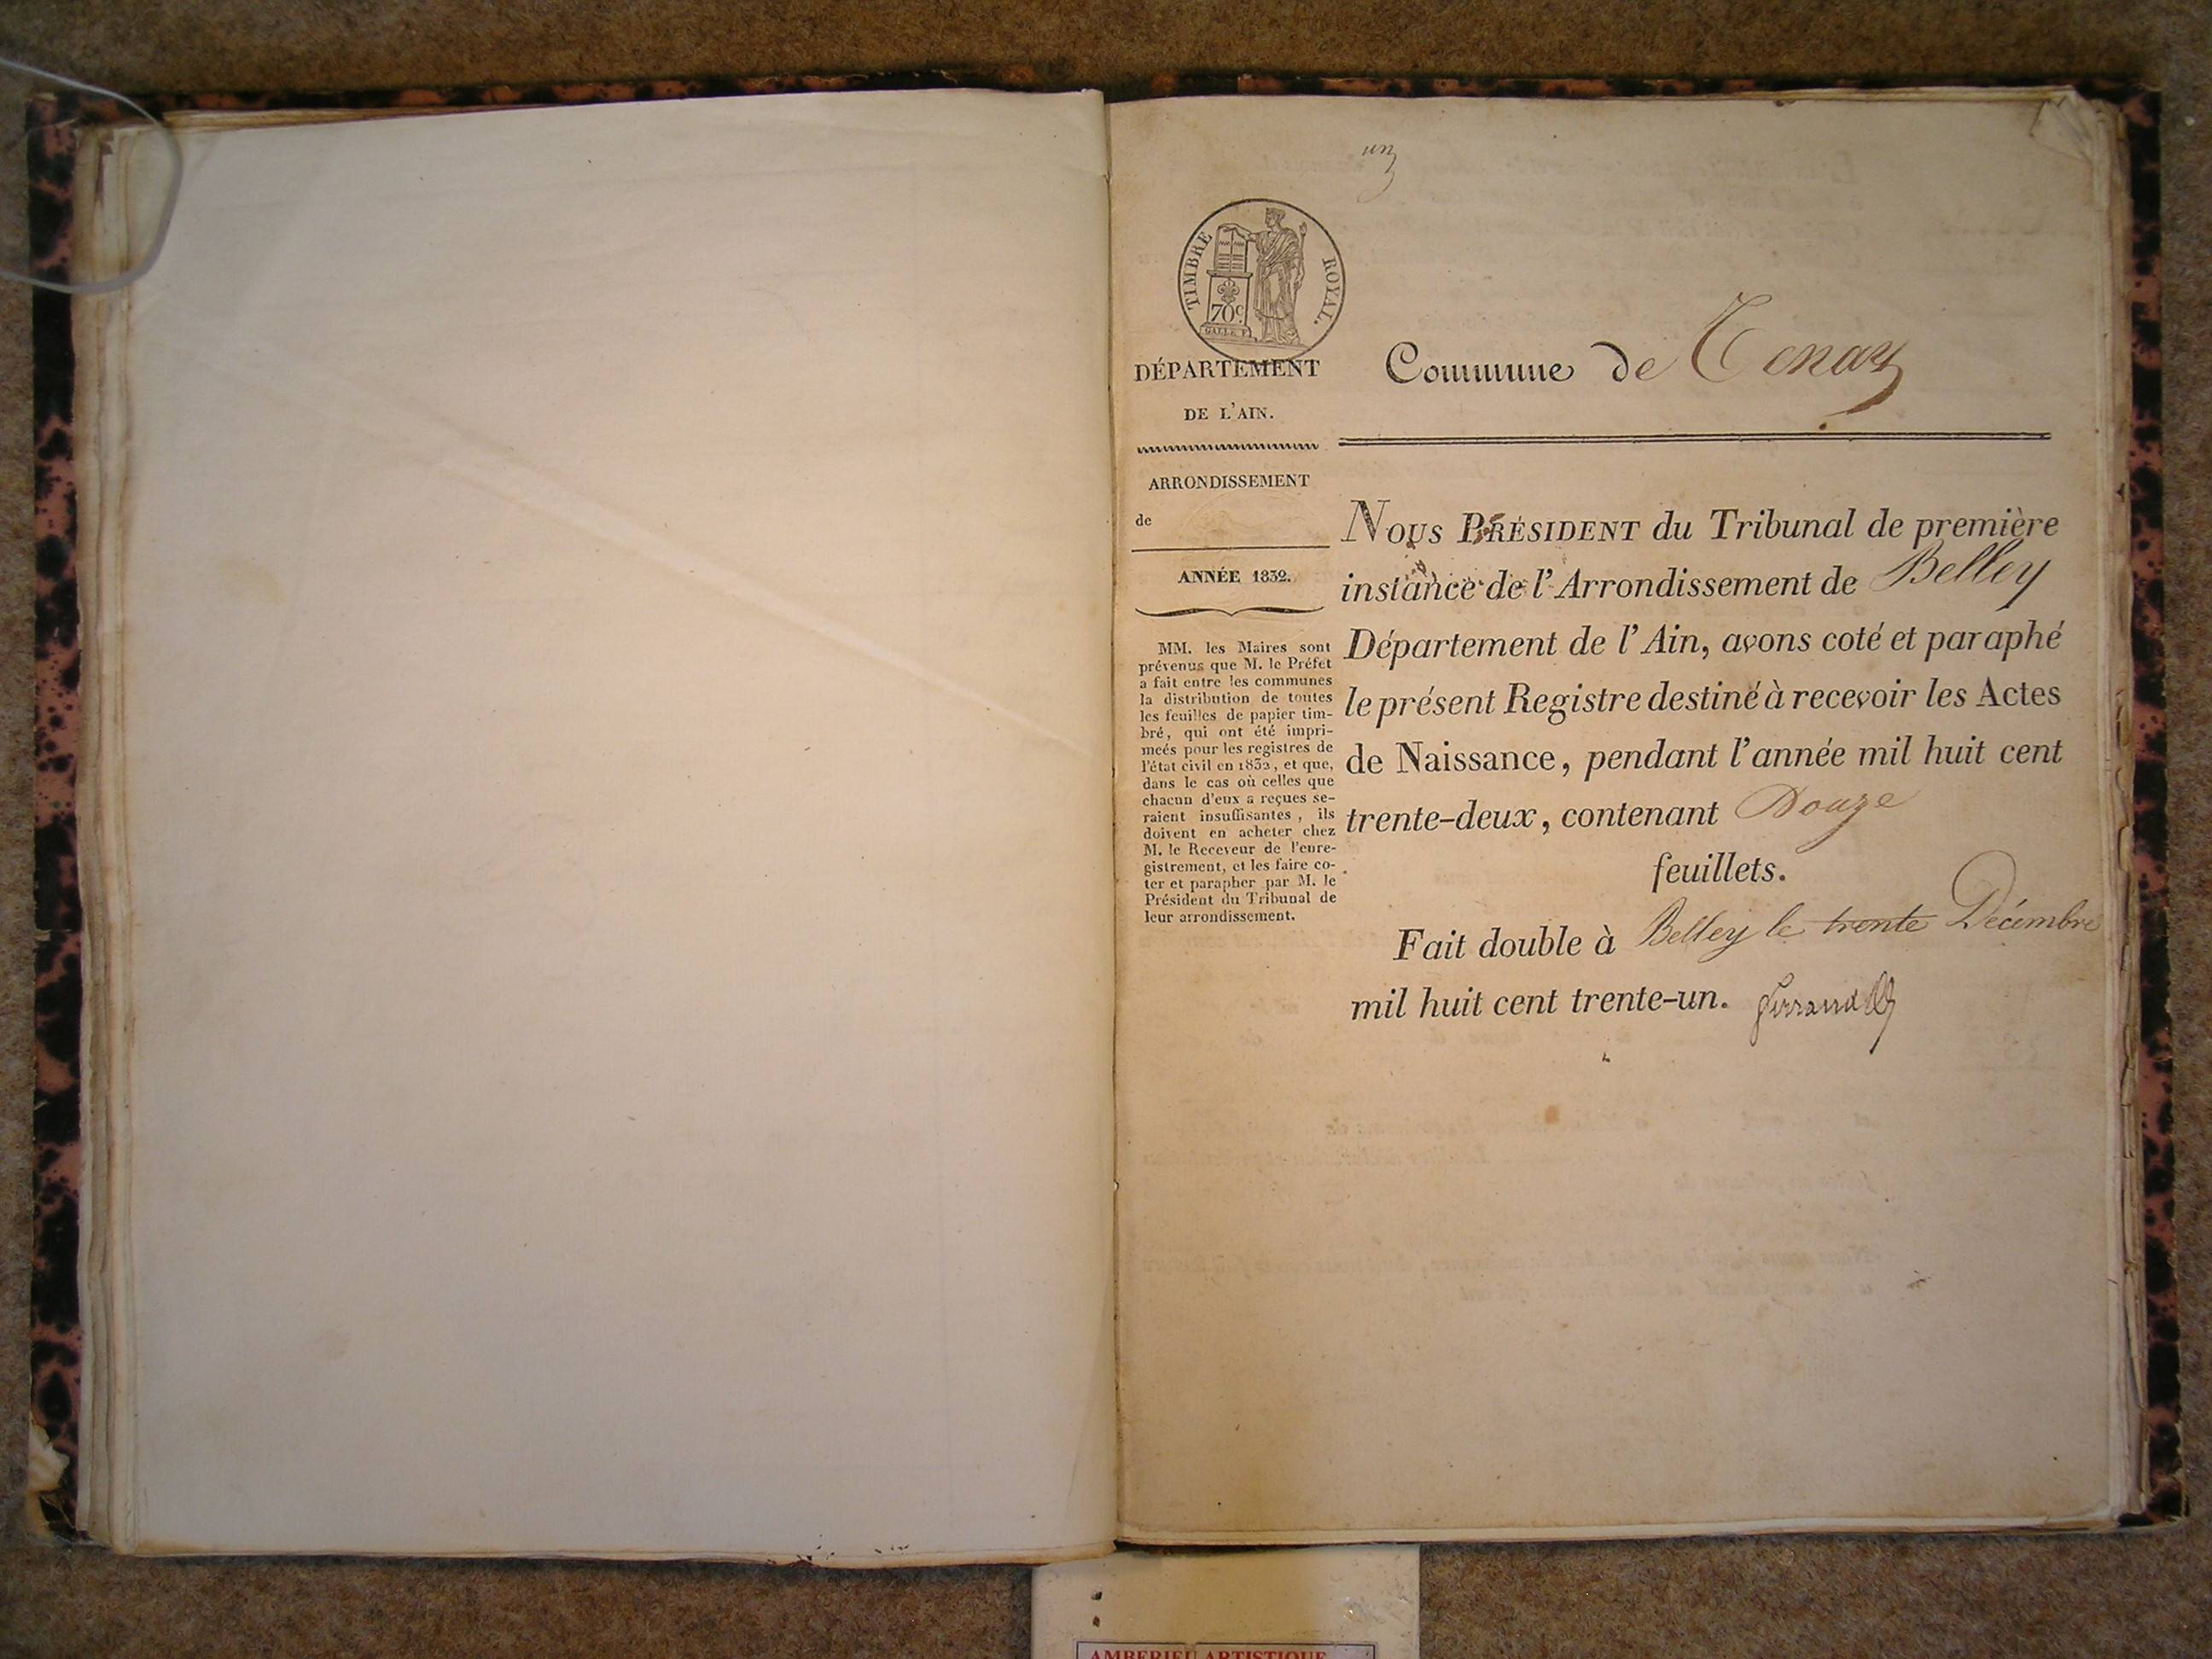 un
TIMBRE ROYAL.
70c.
GALLE F.
DÉPARTEMENT
DE L'AIN.
Commune de Tenay
ARRONDISSEMENT
de
ANNÉE 1832.
MM. les Maires sont
prévenus que M. le Préfet
a fait entre les communes
la distribution de toutes
les feuilles de papier tim-
bré, qui ont été impri-
meés pour les registres de
l'état civil en 1832, et que,
dans le cas où celles que
chacun d'eux a reçues se-
raient insuffisantes, ils
doivent en acheter chez
M. le Receveur de l'enre-
gistrement, et les faire co-
ter et parapher par M. le
Président du Tribunal de
leur arrondissement.
Nous PRÉSIDENT du Tribunal de première
instance de l'Arrondissement de Belley
Département de l'Ain, avons coté et paraphé
le présent Registre destiné à recevoir les Actes
de Naissance, pendant l'année mil huit cent
trente-deux, contenant Douze
feuillets.
Fait double à Belley le trente Décembre
mil huit cent trente-un. Ferrand
AMBERIEU ARTISTIQUE